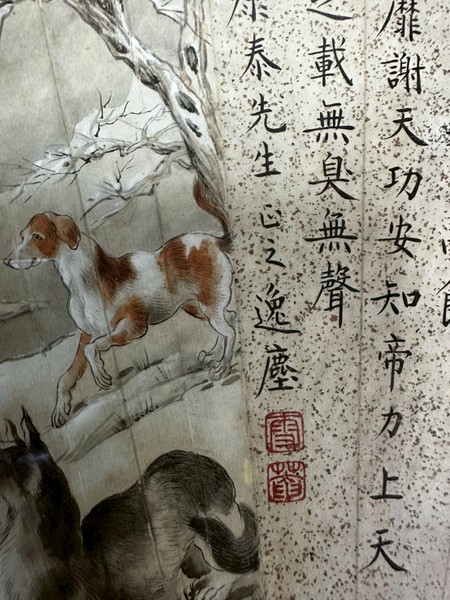 靡謝天功安知帝力上天
之載無臭無聲
康泰先生正之逸塵